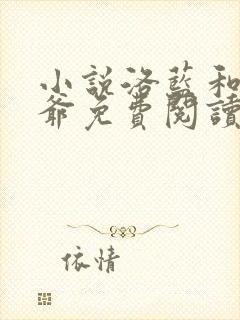 小說洛藍和
爺免費閱讀
依情